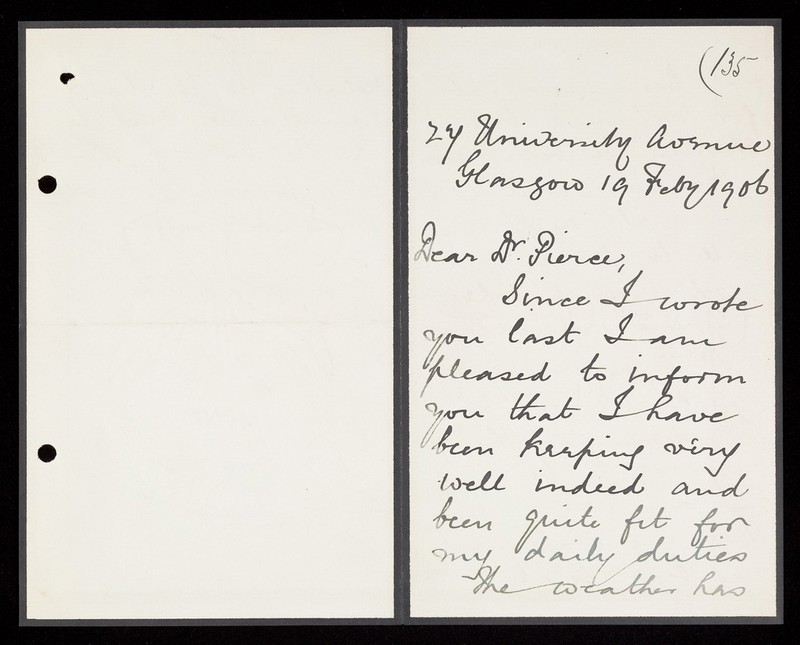 (135
24 University Avenue
Glasgow 19 Feby 1906
Dear Dr. Pierce,
Since I wrote
you last I am
pleased to inform
you that I have
been keeping very
well indeed and
been quite fit for
my daily duties
The weather has